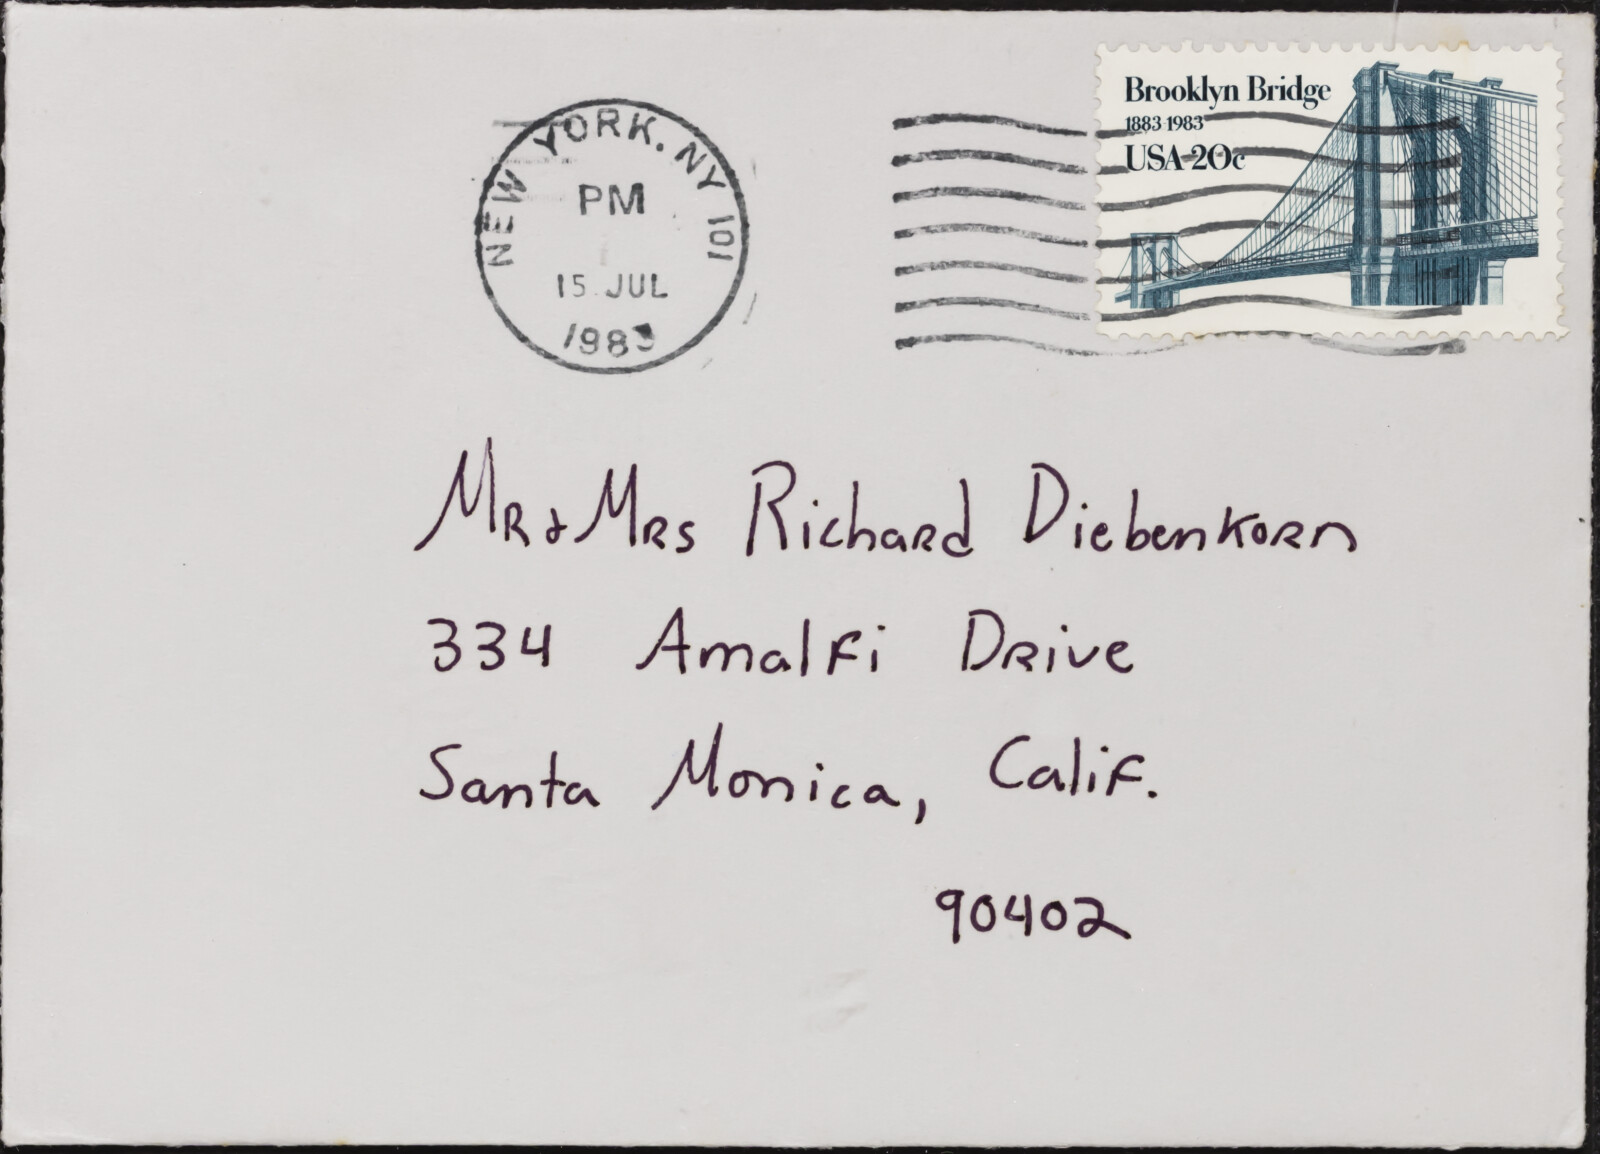 Brooklyn Bridge
1883 1983
USA 20c
NEW YORK, NY 101
PM
15 JUL
1983
Mr & Mrs Richard Diebenkorn
334 Amalfi Drive
Santa Monica, Calif.
90402